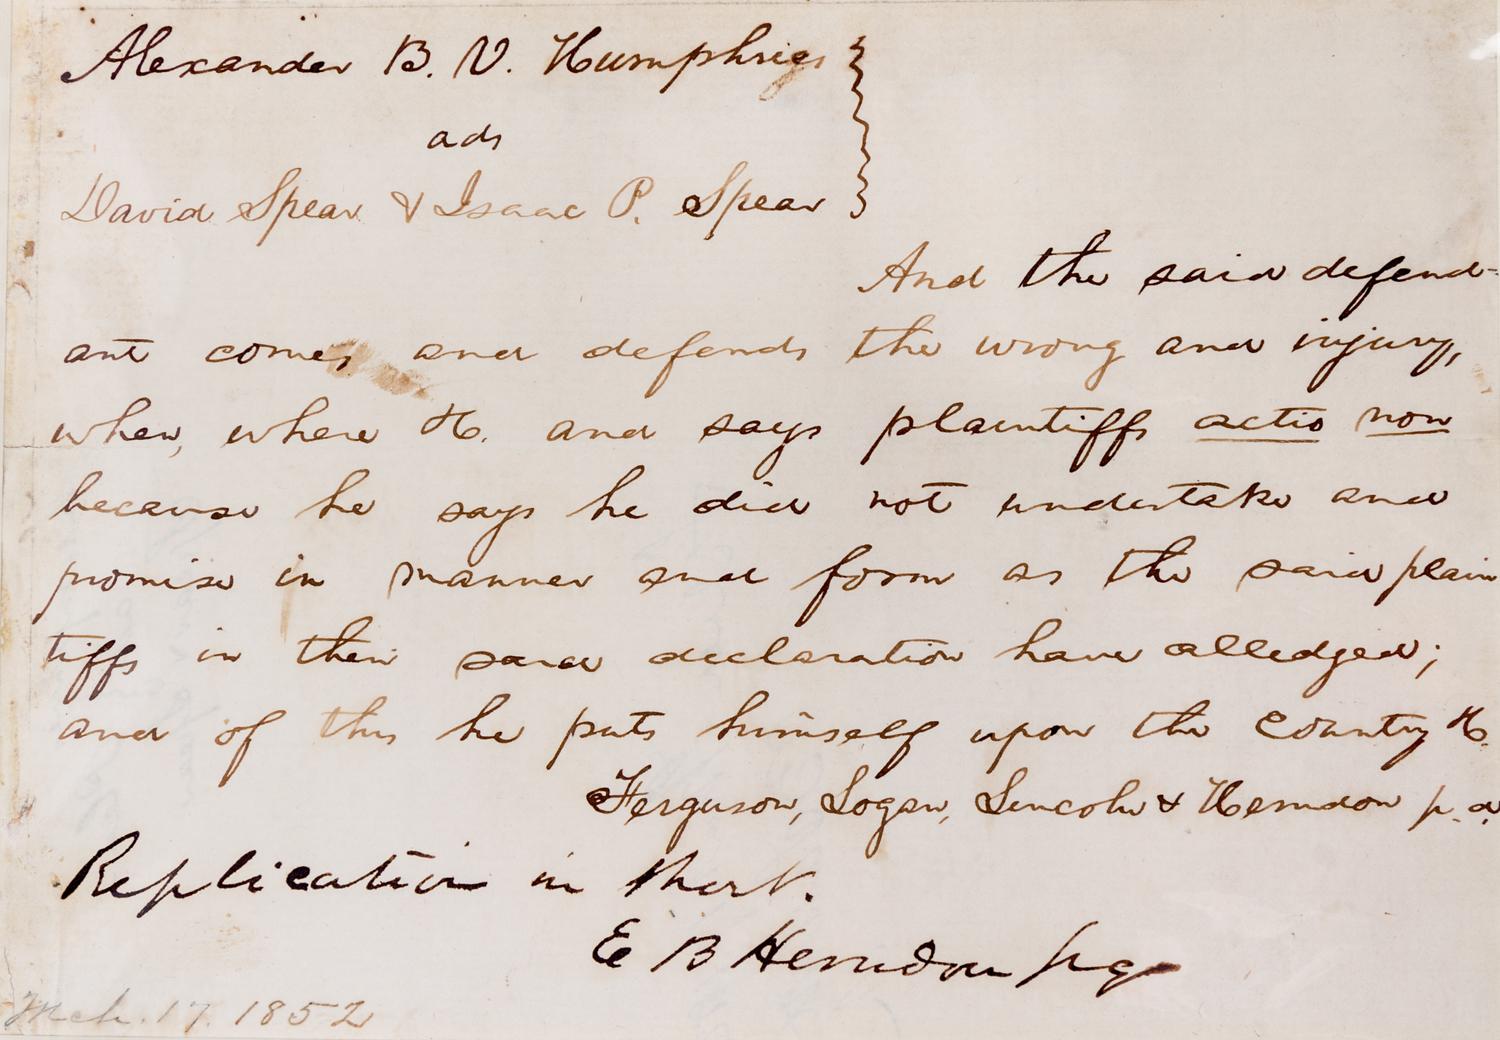 Alexander B. V. Humphries
ads
David Spear & Isaac P. Spear
And the said defend-
ant comes and defends the wrong and injury,
when, where &c. and says plaintiffs actio non
because he says he did not undertake and
promise in manner and form as the said plain
tiffs in their said declaration have alledged;
and of this he puts himself upon the country &c.
Ferguson, Logan, Lincoln & Herndon p. d.
Replication in short.
E B Herndon pq
Mch. 17. 1852